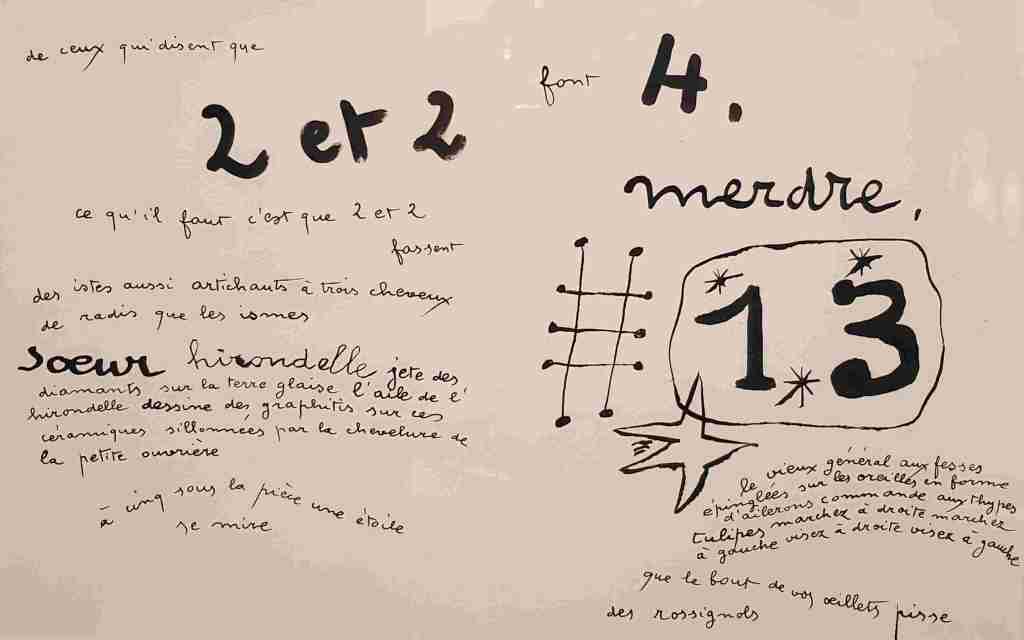 de ceux qui disent que
2 et 2
font 4.
ce qu'il faut c'est que 2 et 2
fassent
des istes aussi artichauts à trois cheveux
de radis que les ismes
soeur hirondelle jete des
diamants sur la terre glaise l'aile de l'
hirondelle dessine des graphitis sur ces
céramiques sillonnées par la chevelure de
la petite ouvrière
à cinq sous la pièce une étoile
se mire
merdre,
13
le vieux général aux fesses
épinglées sur les oreilles en forme
d'ailerons commande aux thypes
tulipes marchez à droite marchez
à gauche visez à droite visez à gauche
que le bout de vos œillets pisse
des rossignols